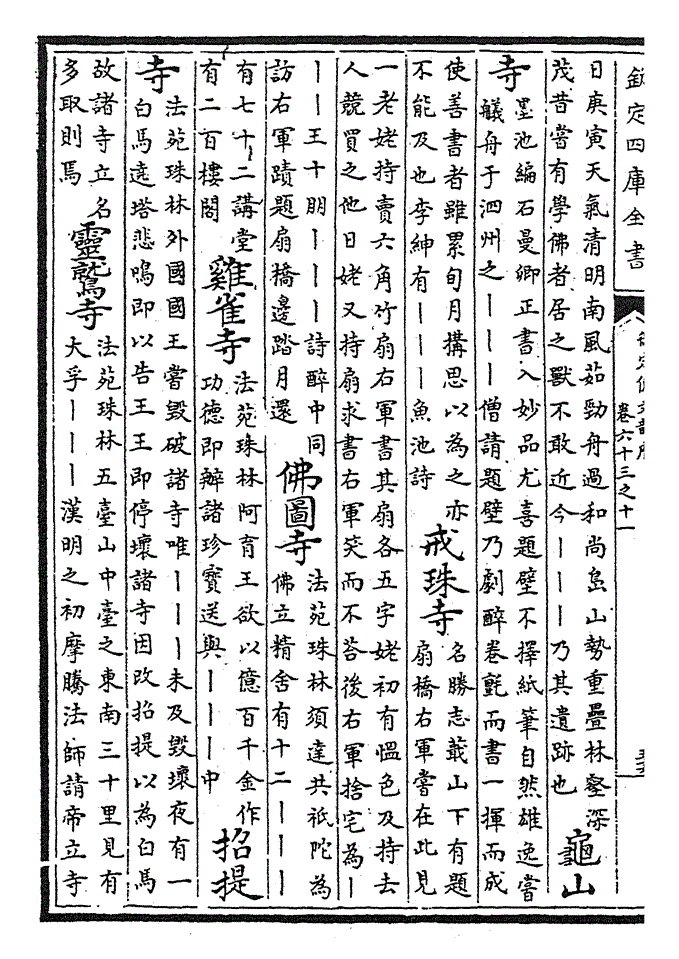 欽定四庫全書
卷六十三之十一
日庚寅天氣清明南風茹勁舟過和尚島山勢重疊林壑深
茂昔嘗有學佛者居之獸不敢近今丨丨丨乃其遺跡也
龜山
寺
墨池編石曼卿正書入妙品尤喜題壁不擇紙筆自然雄逸嘗
艤舟于泗州之丨丨丨僧請題壁乃劇醉卷氈而書一揮而成
使善書者雖累旬月搆思以為之亦
不能及也李紳有丨丨丨魚池詩
戒珠寺
名勝志蕺山下有題
扇橋右軍嘗在此見
一老姥持賣六角竹扇右軍書其扇各五字姥初有慍色及持去
人競買之他日姥又持扇求書右軍笑而不荅後右軍捨宅為丨
丨丨王十朋丨丨丨詩醉中同
訪右軍蹟題扇橋邊踏月還
佛圖寺
法苑珠林須達共祇陀為
佛立精舍有十二丨丨丨
有七十二講堂
有二百樓閣
雞雀寺
法苑珠林阿育王欲以億百千金作
功德即辦諸珍寶送與丨丨丨中
招提
寺
法苑珠林外國國王嘗毀破諸寺唯丨丨丨未及毀壞夜有一
白馬遶塔悲鳴即以告王王即停壞諸寺因改招提以為白馬
故諸寺立名
多取則焉
靈鷲寺
法苑珠林五臺山中臺之東南三十里見有
大孚丨丨丨漢明之初摩騰法師請帝立寺